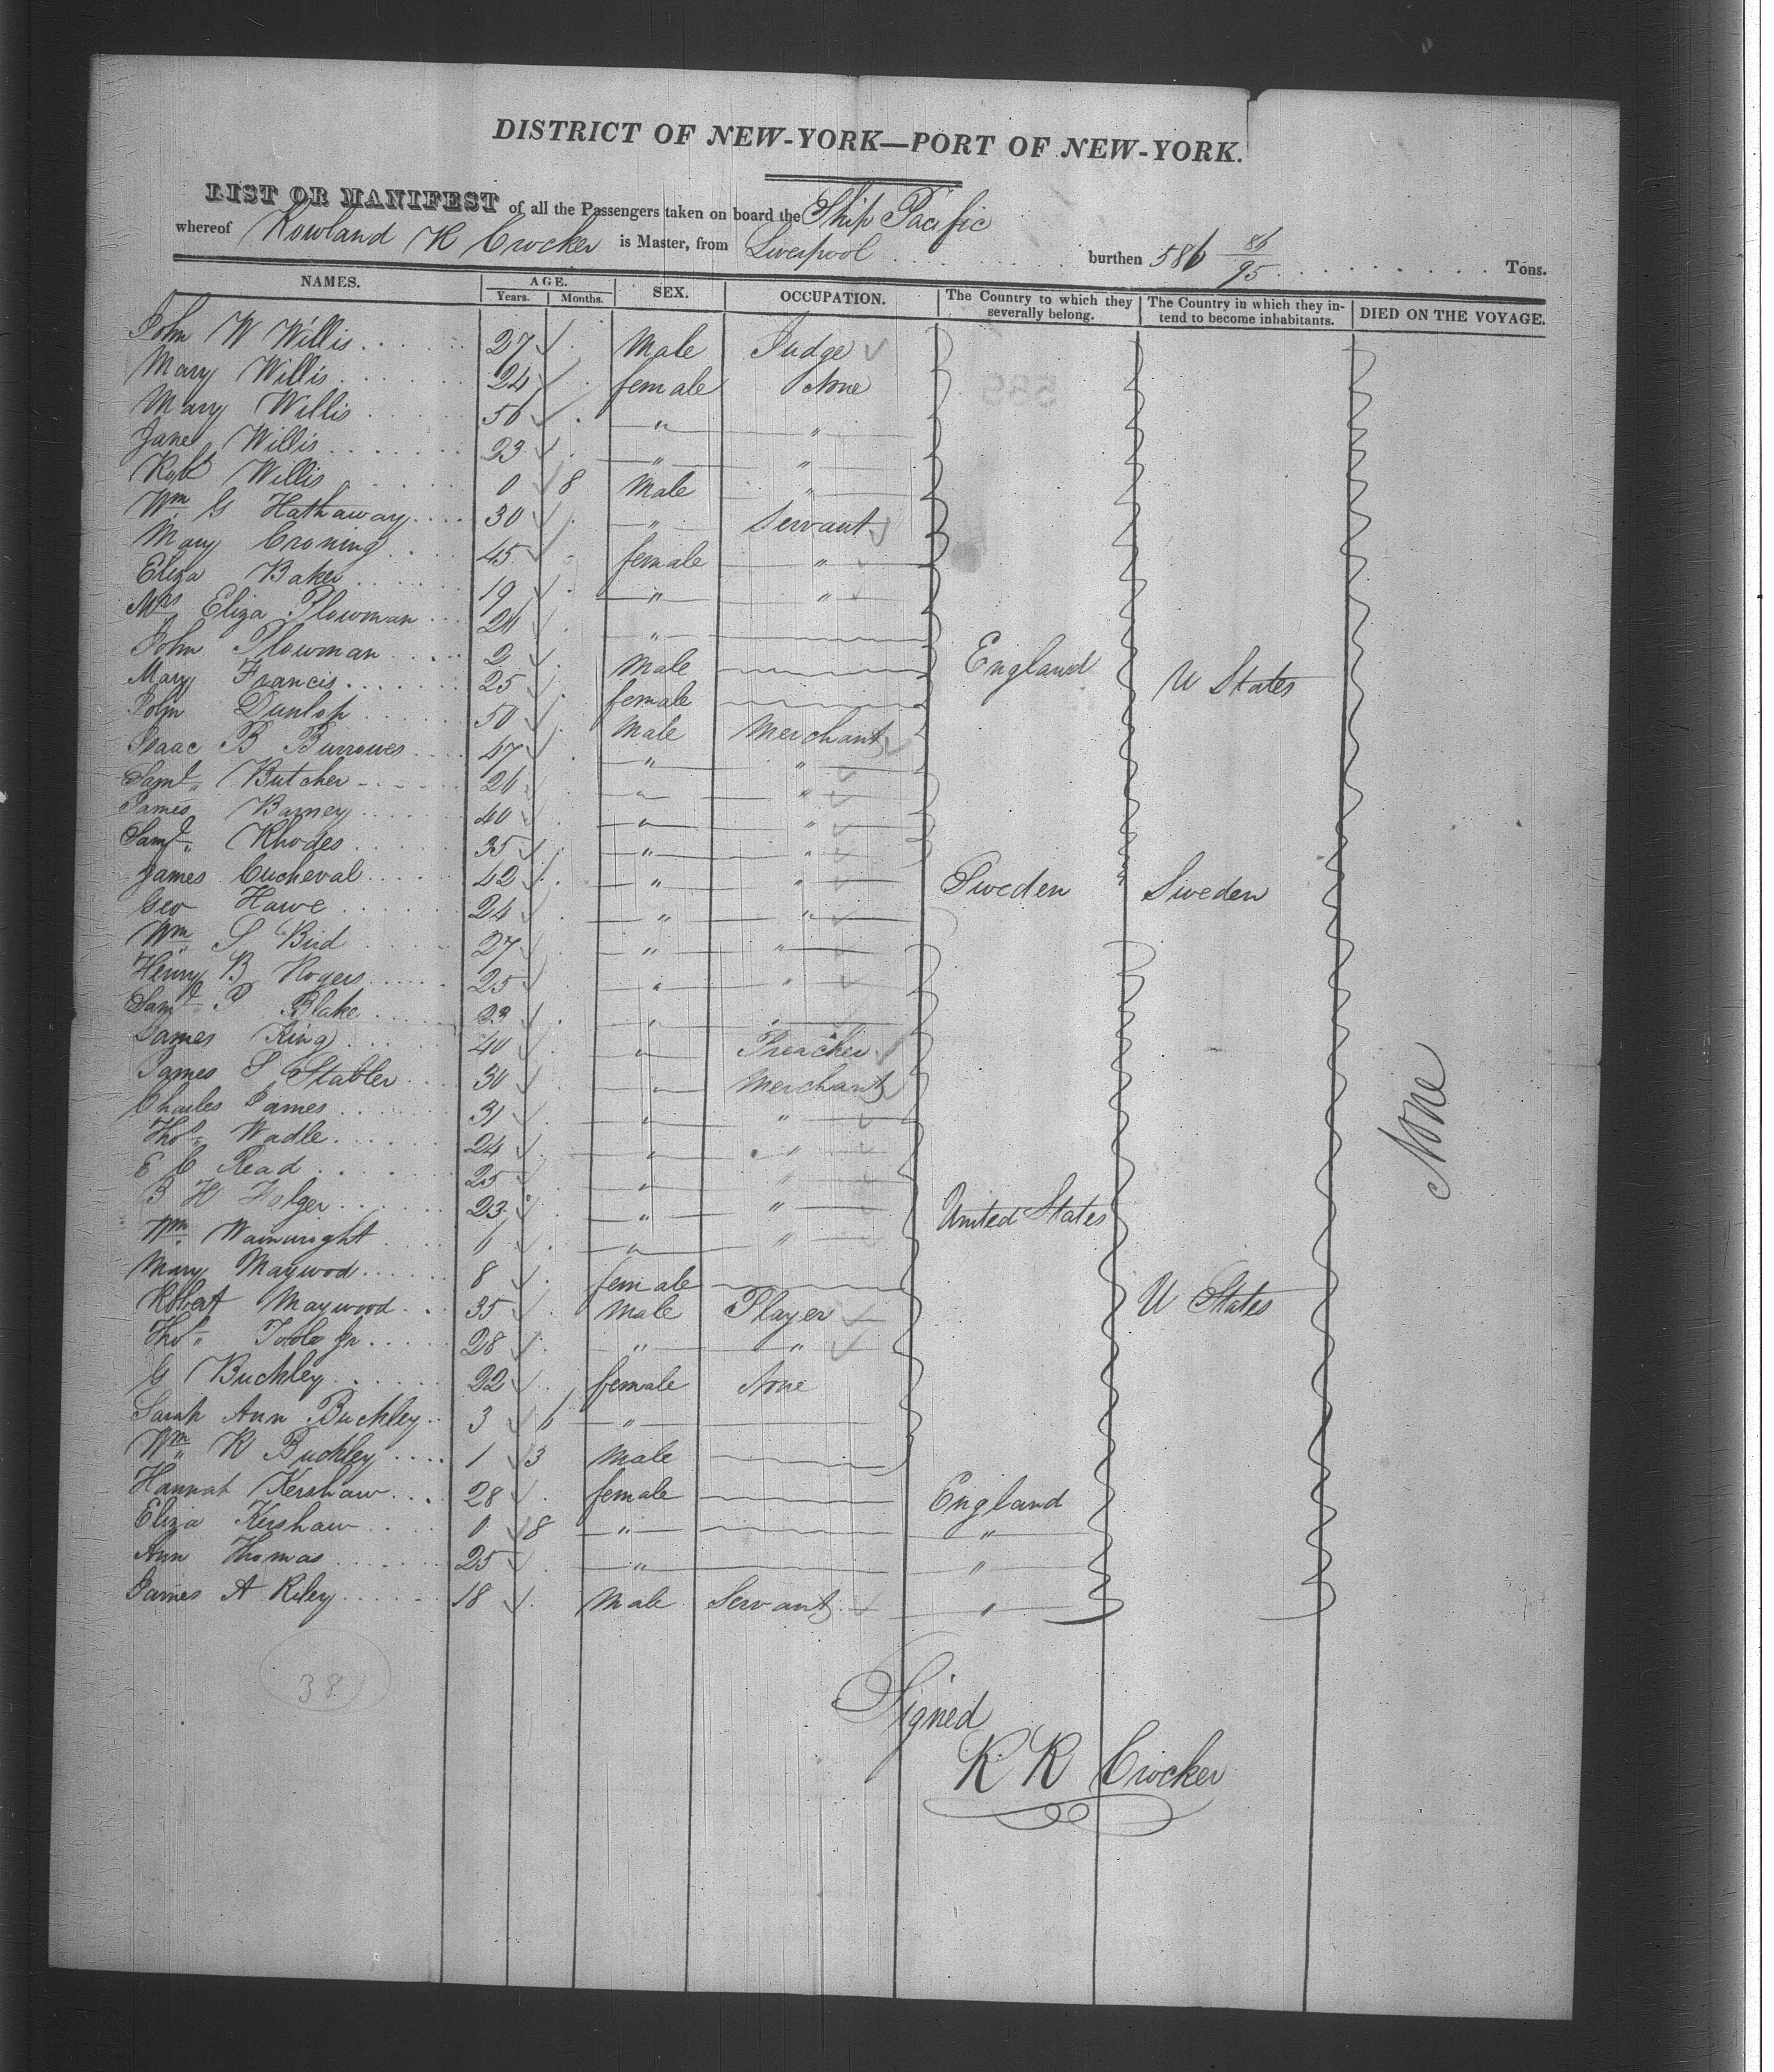 DISTRICT OF NEW-YORK—PORT OF NEW-YORK.
LIST OR MANIFEST of all the Passengers taken on board the Ship Pacific
whereof Rowland R Crocker is Master, from Liverpool burthen 586 86/95 Tons.
NAMES. AGE. Years. Months. SEX. OCCUPATION. The Country to which they severally belong. The Country in which they intend to become inhabitants. DIED ON THE VOYAGE.
John W Willis 27 Male Judge
Mary Willis 24 female None
Mary Willis 56 " "
Jane Willis 23 " "
Robt Willis 0 8 Male "
Wm G Hathaway 30 " Servant
Mary Croning 45 female "
Eliza Baker 19 " "
Mrs Eliza Plowman 24 "
John Plowman 2 Male England U States
Mary Francis 25 female
John Dunlop 50 Male Merchant
Isaac B Burrowes 47 " "
Saml Butcher 26 " "
James Barney 40 " "
Saml Rhodes 35 " "
James Cucheval 42 " " Sweden Sweden
Geo Hawe 24 " "
Wm S Bird 27 " "
Henry B Rogers 25 " "
Saml P Blake 23 " "
James King 40 " Preacher
James S Stabler 30 " Merchant
Charles James 31 " "
Thos Wadle 24 " "
E C Read 25 " "
B H Folger 23 " " United States
Wm Wainwright 6 " "
Mary Maywood 8 female
Robert Maywood 35 Male Player U States
Thos Jr 28 " "
G Buckley 22 female None
Sarah Ann Buckley 3 6 "
Wm R Buckley 1 3 Male
Hannah Kershaw 28 female England
Eliza Kershaw 0 8 " "
Ann Thomas 25 " "
James A Riley 18 Male Servant "
None
38
Signed
R R Crocker